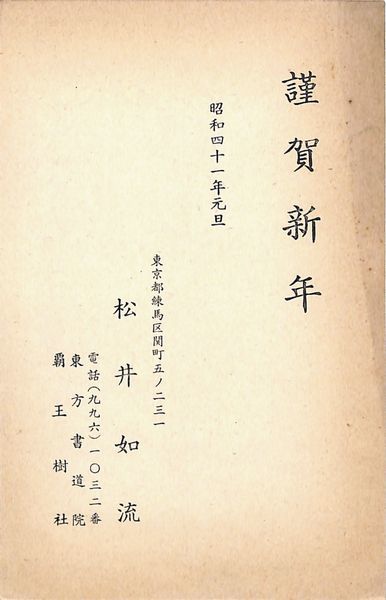 謹賀新年
昭和四十一年元旦
東京都練馬区関町五ノ二三一
松井如流
電話(九九六)一〇三二番
東方書道院
覇王樹社